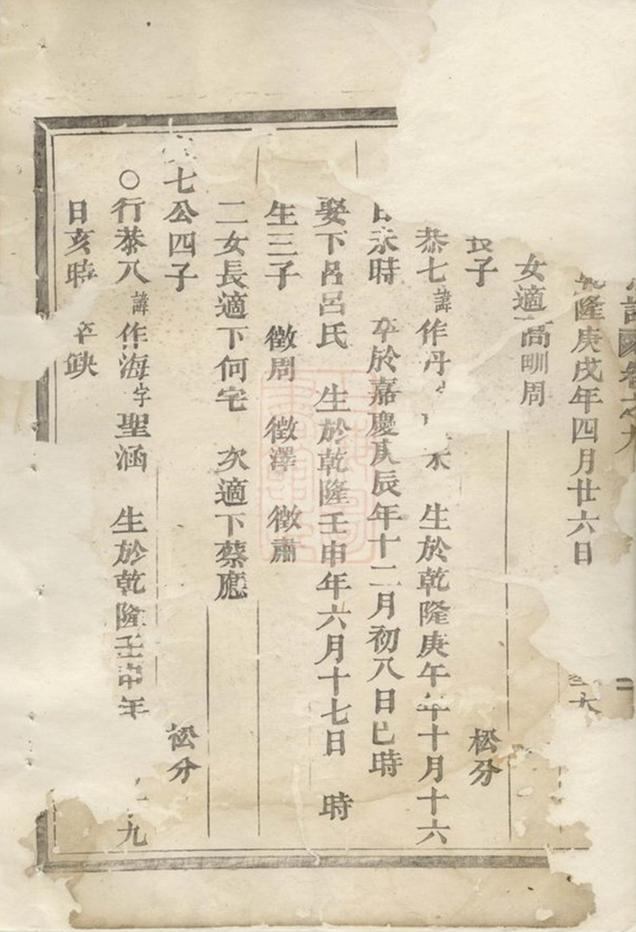 譜 卷之九
乾隆庚戌年四月廿六日
女適高㽘周
長子 松分
恭七諱作丹 生於乾隆庚午年十月十六
日未時 卒於嘉慶庚辰年十二月初八日巳時
娶下呂呂氏 生於乾隆壬申年六月十七日 時
生三子 徵周 徵澤 徵肅
二女長適下何宅 次適下蔡應
七公四子 松分
○行恭八諱作海字聖涵 生於乾隆壬申年 九
日亥時 卒缺